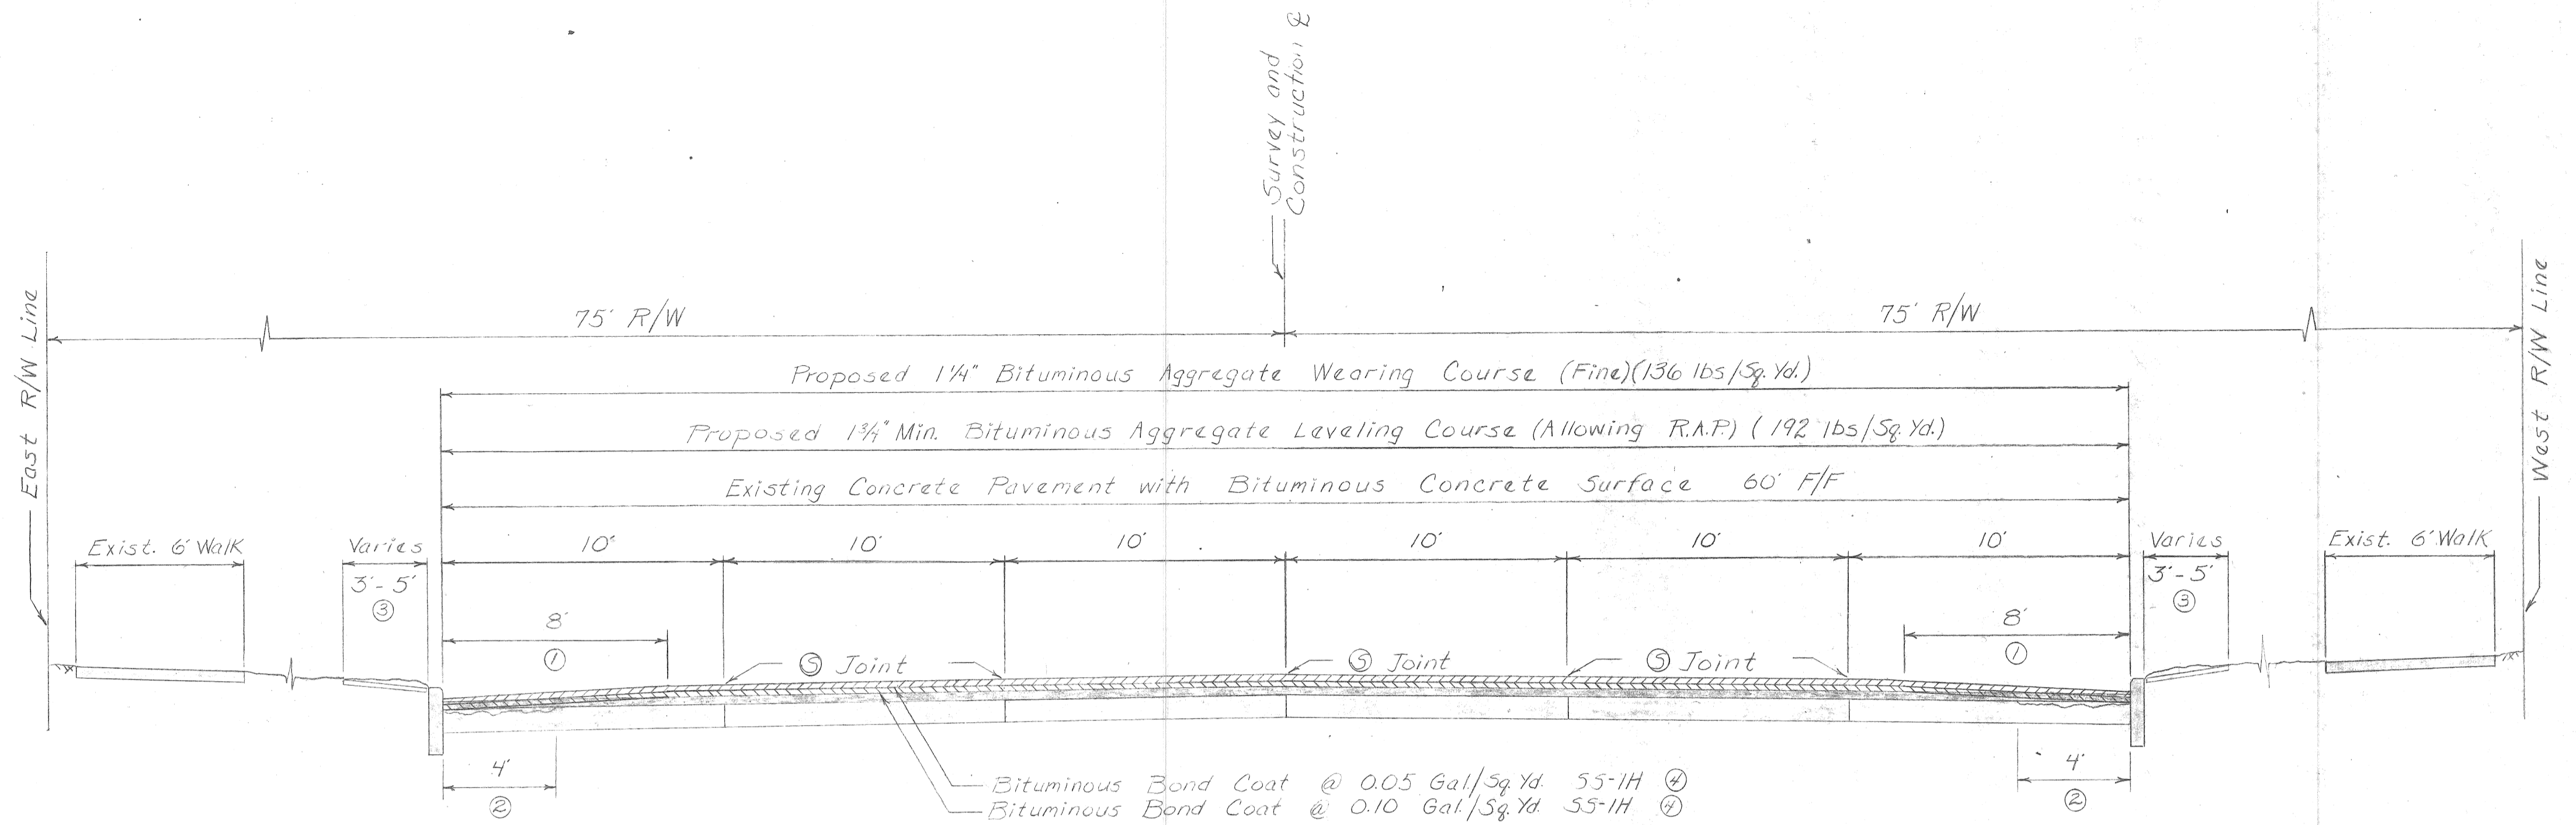 Survey and
Construction ℄
East R/W Line
West R/W Line
75' R/W
75' R/W
Proposed 1¼" Bituminous Aggregate Wearing Course (Fine)(136 lbs/Sq. Yd.)
Proposed 1¾" Min. Bituminous Aggregate Leveling Course (Allowing R.A.P.) (192 lbs/Sq. Yd.)
Existing Concrete Pavement with Bituminous Concrete Surface 60' F/F
Exist. 6' Walk
Varies
3'-5'
③
10'
10'
10'
10'
10'
10'
Varies
3'-5'
③
Exist. 6' Walk
8'
①
8'
①
Ⓢ Joint
Ⓢ Joint
Ⓢ Joint
4'
②
4'
②
Bituminous Bond Coat @ 0.05 Gal./Sq. Yd. SS-1H ④
Bituminous Bond Coat @ 0.10 Gal./Sq. Yd. SS-1H ④